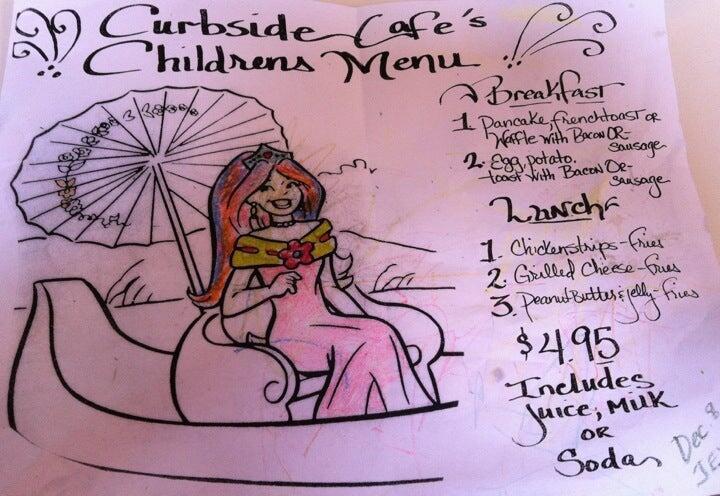 Curbside Cafe's
Childrens Menu
Breakfast
1. Pancake, frenchtoast or
Waffle with Bacon OR-
sausage
2. Egg, potato.
toast with Bacon OR-
sausage
Lunch
1. Chickenstrips-fries
2. Grilled Cheese-fries
3. Peanut Butter & jelly-fries
$4.95
Includes
Juice, Milk
OR
Soda
Dec. 8